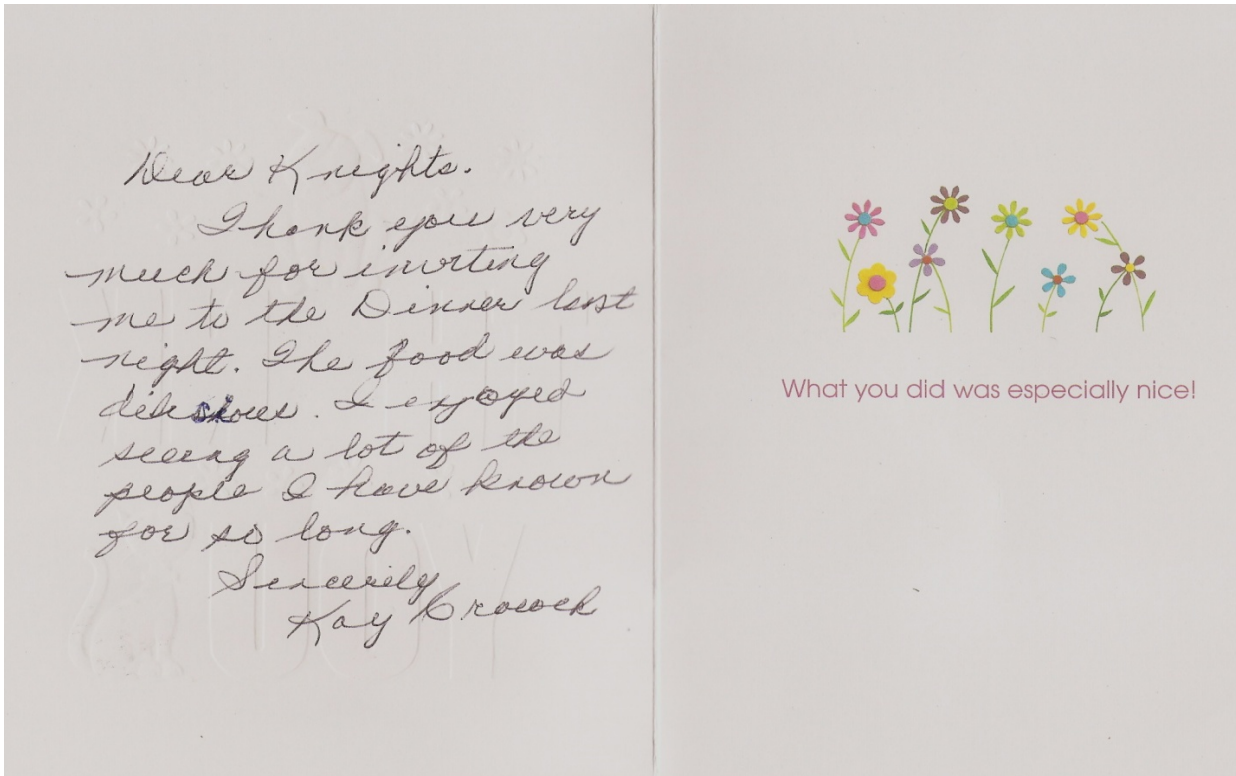 Dear Knights.
Thank you very
much for inviting
me to the Dinner last
night. The food was
delicious. I enjoyed
seeing a lot of the
people I have known
for so long.
Sincerily
Kay
What you did was especially nice!